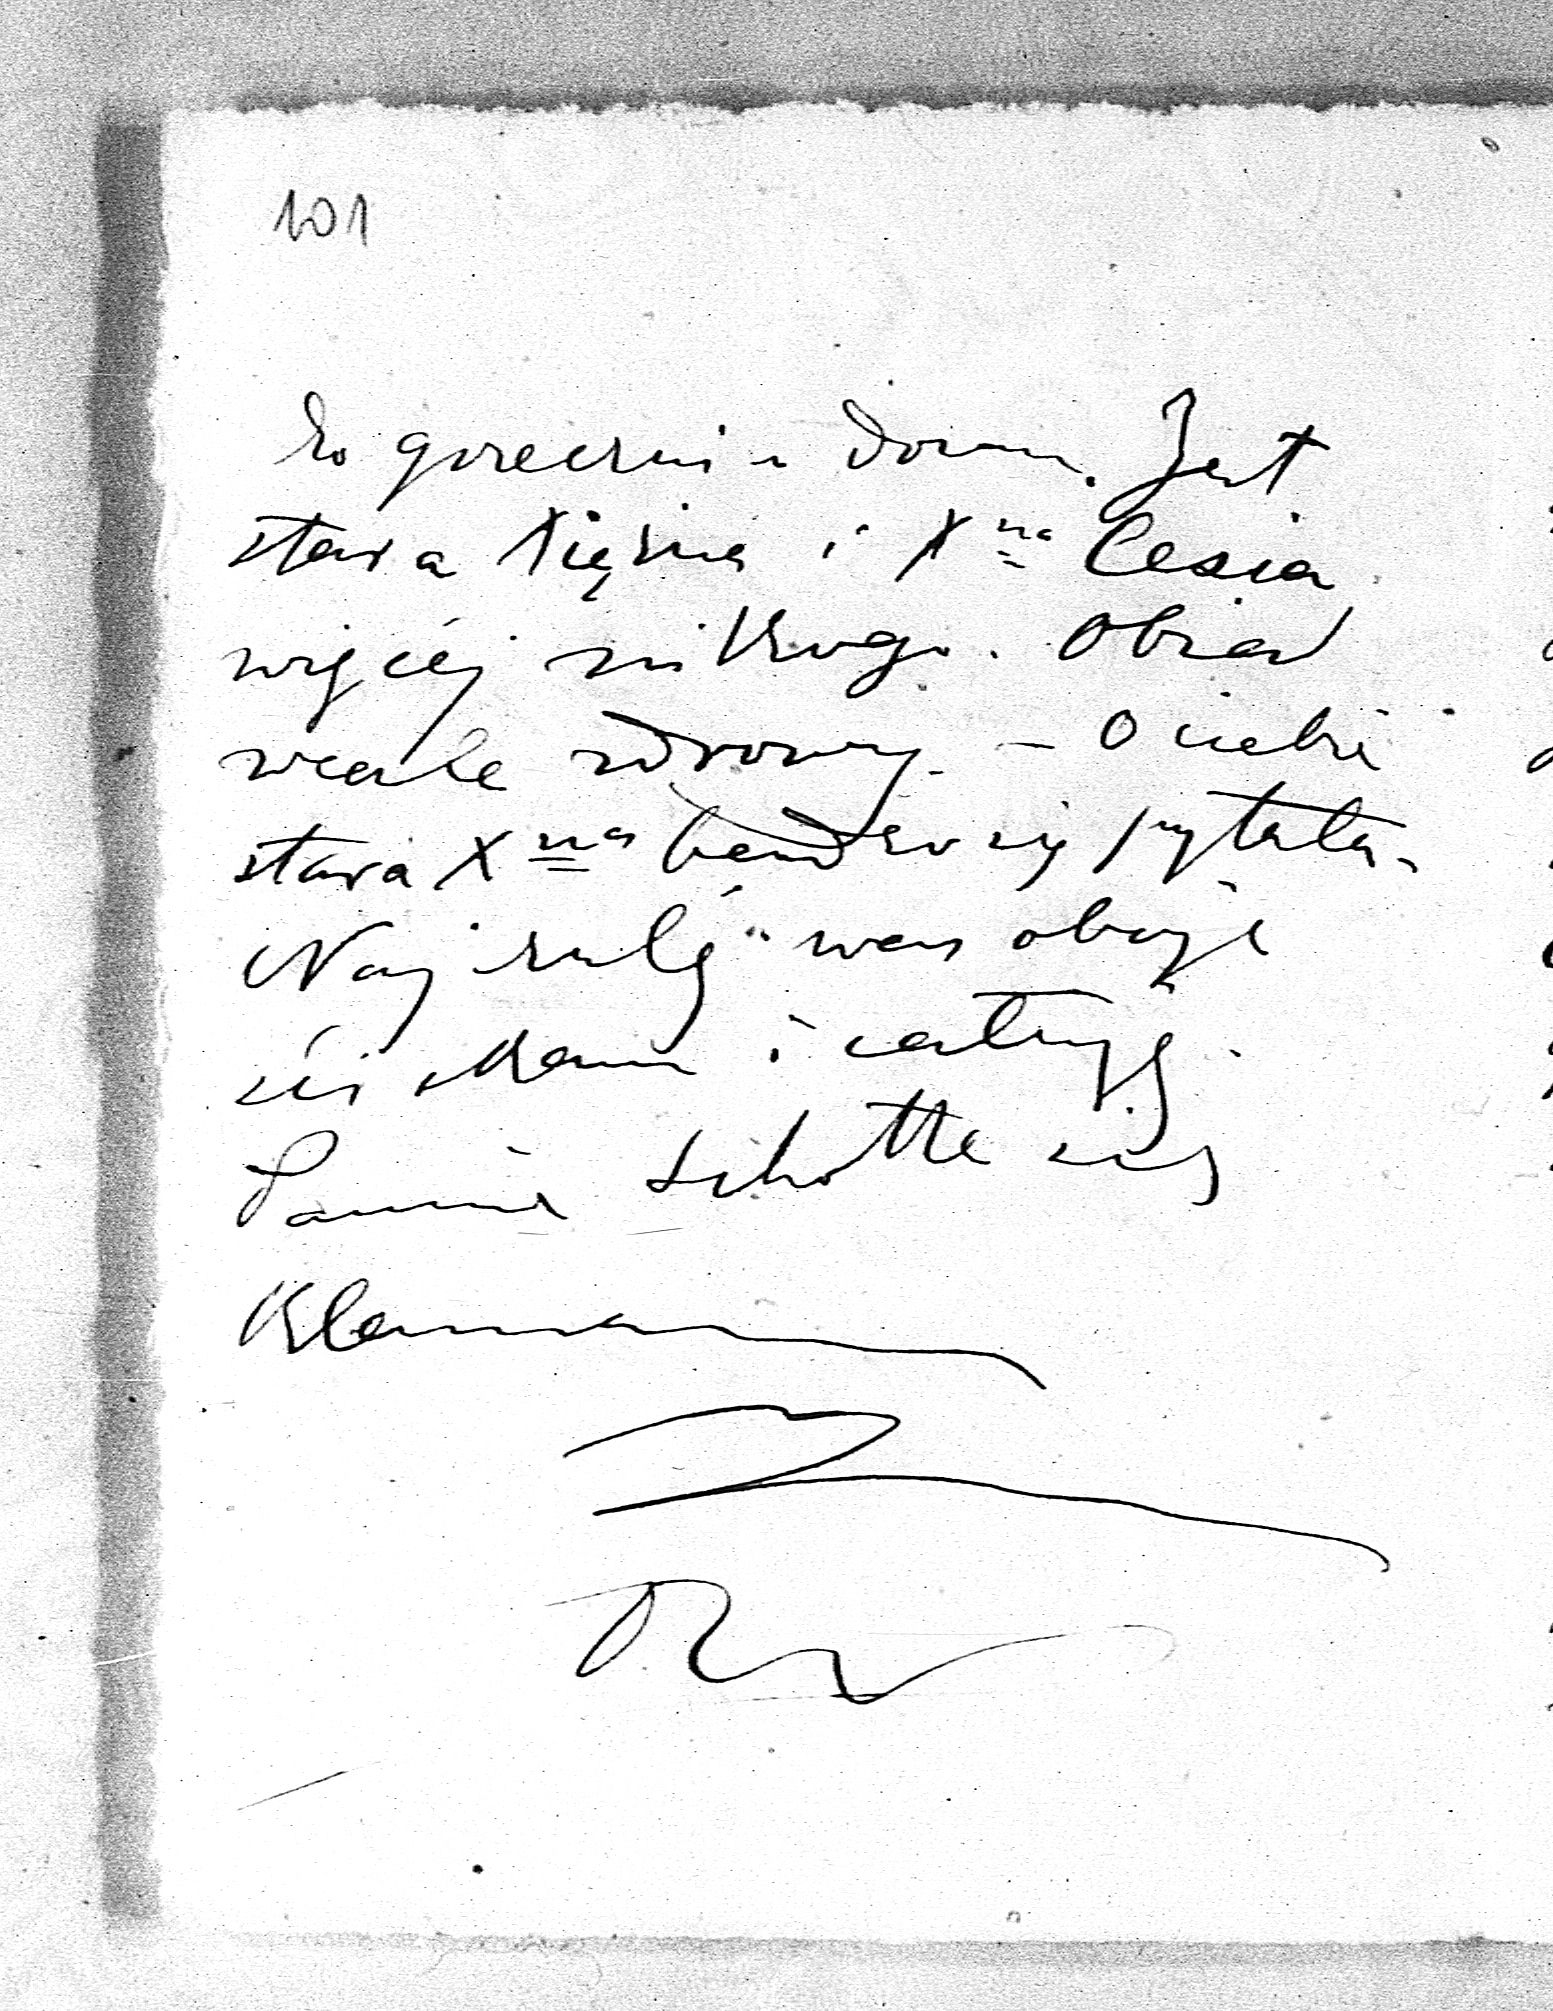 101
to grzeczni w domu. Jest
stara Xiężna i Xna Cesia
więcéj nikogo. Obiad
wcale zdrowy. – O ciebie
stara Xna bardzo się pytała.
Najczulej was oboje
ściskam i całuję.
Pannie Schotte się
kłaniam